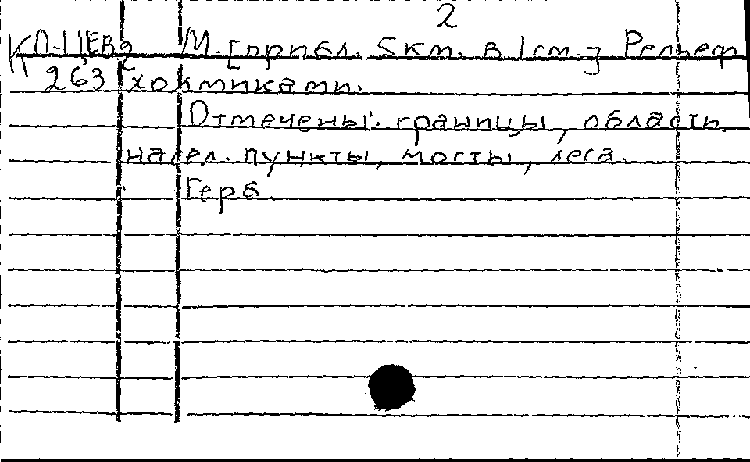 2
К П-ЦЕВ2 М. [прибл. 5км. в 1см.] Рельеф
263 холмиками.
Отмечены: границы, область
насел. пункты, мосты, леса.
Герб.